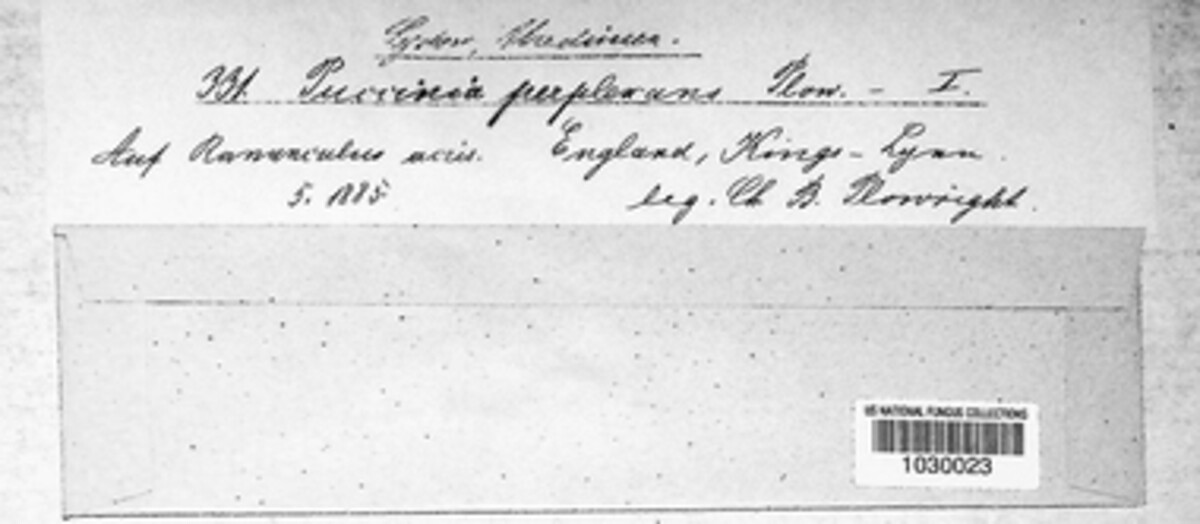 Sydow, Uredineen.
331. Puccinia perplexans Plow. - I.
Auf Ranunculus acris. England, Kings-Lynn.
5. 1885 leg. Ch. B. Plowright.
US NATIONAL FUNGUS COLLECTIONS
1030023